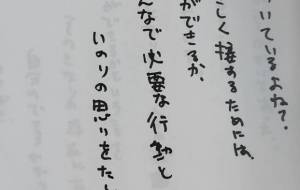 いているよね？
しく接するためには、
ができるか。
んなで必要な行動と
いのりの思いをた